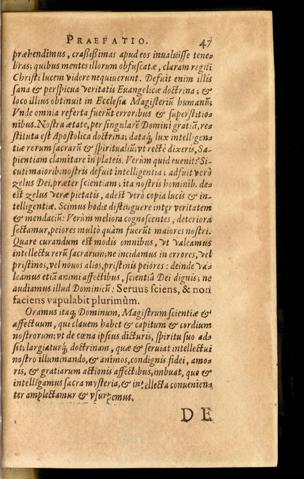 PRAEFATIO. 47
præhendimus, crassissimas apud eos invaluisse tene-
bras; quibus mentes illorum obfuscatæ, claram regni
Christi lucem videre nequiverunt. Defuit enim illis
sana & perspicua veritatis Euangelicæ doctrina; &
loco illius obtinuit in Ecclesia Magisteriũ humanũ
Vnde omnia referta fuerũt erroribus & superstitio
nibus. Nostra ætate, per singularẽ Domini gratiã, re
stituta est Apostolica doctrina; dataq́; lux intelligen-
tiæ rerum sacrarũ & spiritualiũ: vt rectè dixeris, Sa-
pientiam clamitare in plateis. Verùm quid evenit? Si-
cuti maiorib. nostris defuit intelligentia; adfuit verò
zelus Dei, præter scientiam; ita nostris hominib. de-
est zelus veræ pietatis, adest verò copia lucis & in-
telligentiæ. Scimus hodiè distinguere inter veritatem
& mendaciũ: Verùm meliora cognoscentes, deteriora
sectamur, peiores multò quàm fuerũt maiores nostri.
Quare curandum est modis omnibus, vt valeamus
intellectu rerũ sacrarum; ne incidamus in errores, vel
pristinos, vel novos alios, pristinis peiores: deinde va-
leamus etiã animi affectibus, scientiâ Dei dignis; ne
audiamus illud Dominicũ: Seruus sciens, & non
faciens vapulabit plurimùm.
Oramus itaq́; Dominum, Magistrum scientiæ &
affectuum, qui clauem habet & capitum & cordium
nostrorum: vt de cœna ipsius dicturis, spiritu suo ad
sit; largiaturq́; doctrinam, quæ & seruiat intellectui
nostro illuminando, & animos, condignis fidei, amo-
ris, & gratiarum actionis affectibus, imbuat, quo &
intelligamus sacra mysteria, & intellecta convenien-
ter amplectamur & vsurpemus.
DE